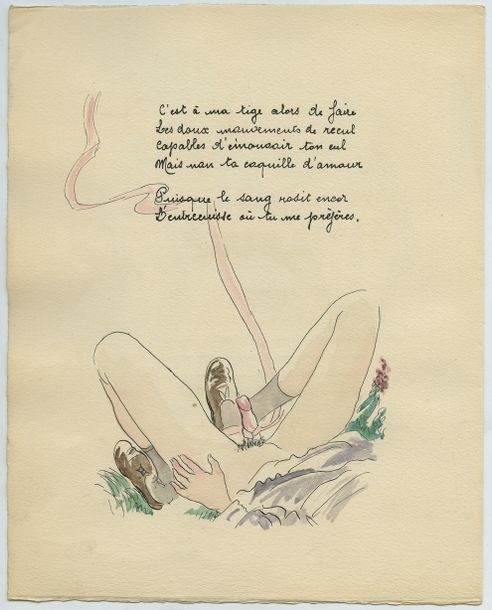 C'est à ma tige alors de faire
Les doux mouvements de recul
Capables d'émouvoir ton cul
Mais non ta coquille d'amour
Puisque le sang rosit encor
L'entrecuisse où tu me préfères.